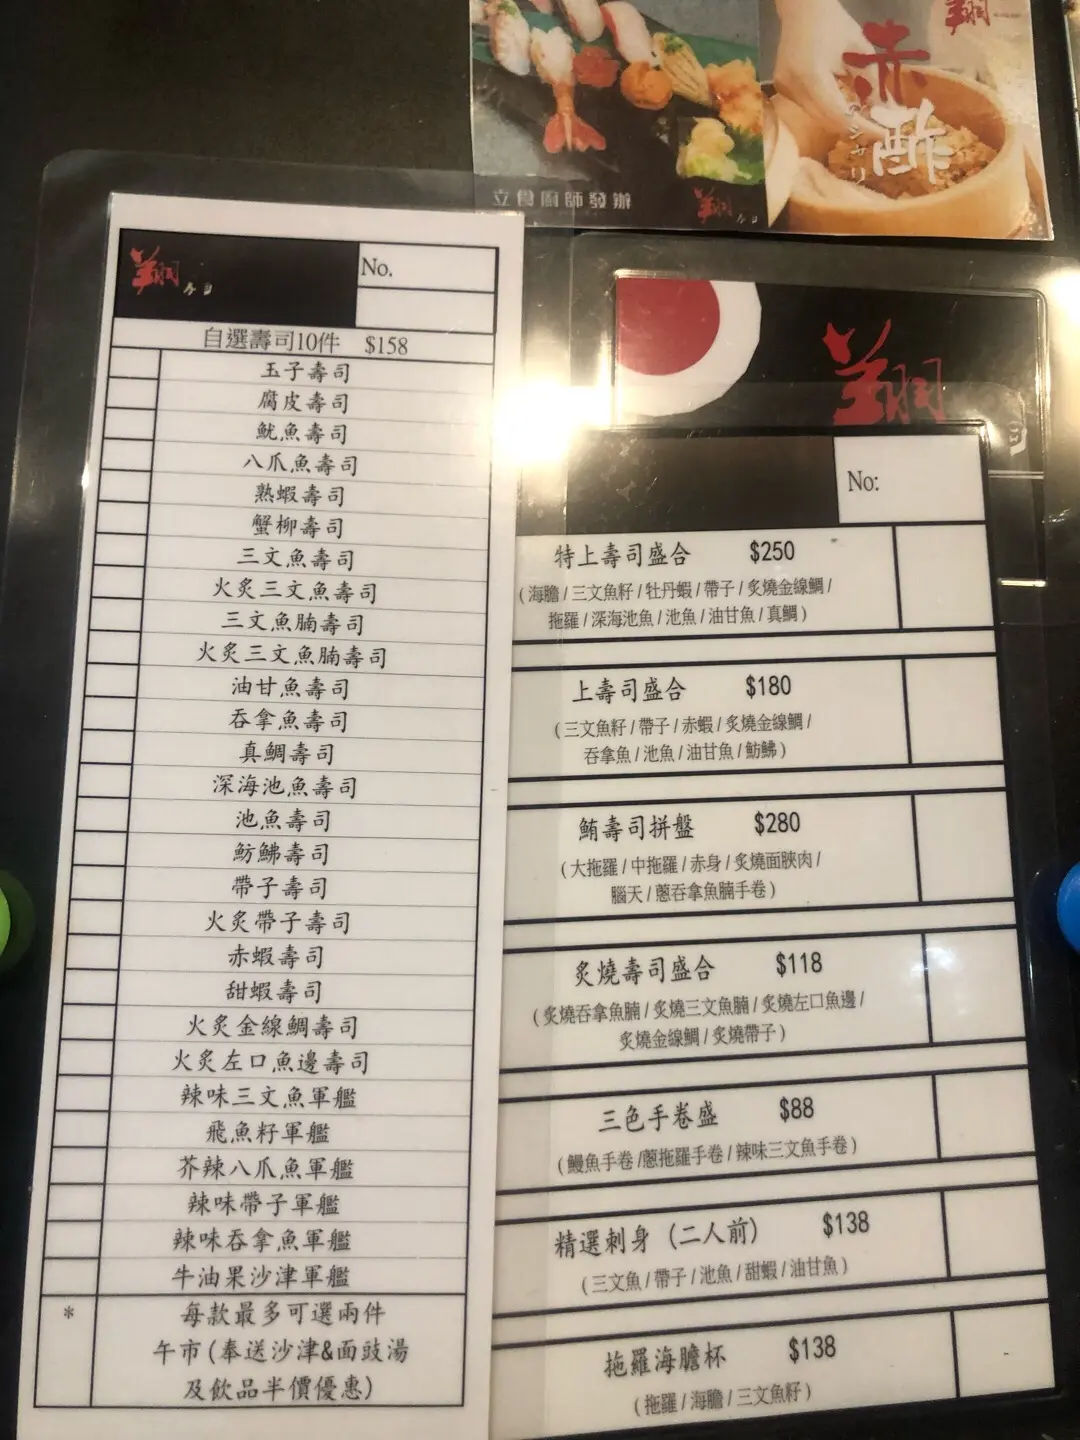 翔
赤
酢
のシャリ
立食廚師發辦
翔
翔
No.
自選壽司10件 $158
玉子壽司
腐皮壽司
魷魚壽司
八爪魚壽司
熟蝦壽司
蟹柳壽司
三文魚壽司
火炙三文魚壽司
三文魚腩壽司
火炙三文魚腩壽司
油甘魚壽司
吞拿魚壽司
真鯛壽司
深海池魚壽司
池魚壽司
魴鮄壽司
帶子壽司
火炙帶子壽司
赤蝦壽司
甜蝦壽司
火炙金線鯛壽司
火炙左口魚邊壽司
辣味三文魚軍艦
飛魚籽軍艦
芥辣八爪魚軍艦
辣味帶子軍艦
辣味吞拿魚軍艦
牛油果沙津軍艦
* 每款最多可選兩件
午市(奉送沙津&面豉湯
及飲品半價優惠)
翔
No:
特上壽司盛合 $250
(海膽/三文魚籽/牡丹蝦/帶子/炙燒金線鯛/
拖羅/深海池魚/池魚/油甘魚/真鯛)
上壽司盛合 $180
(三文魚籽/帶子/赤蝦/炙燒金線鯛/
吞拿魚/池魚/油甘魚/魴鮄)
鮪壽司拼盤 $280
(大拖羅/中拖羅/赤身/炙燒面脥肉/
腦天/蔥吞拿魚腩手卷)
炙燒壽司盛合 $118
(炙燒吞拿魚腩/炙燒三文魚腩/炙燒左口魚邊/
炙燒金線鯛/炙燒帶子)
三色手卷盛 $88
(鰻魚手卷/蔥拖羅手卷/辣味三文魚手卷)
精選刺身(二人前) $138
(三文魚/帶子/池魚/甜蝦/油甘魚)
拖羅海膽杯 $138
(拖羅/海膽/三文魚籽)